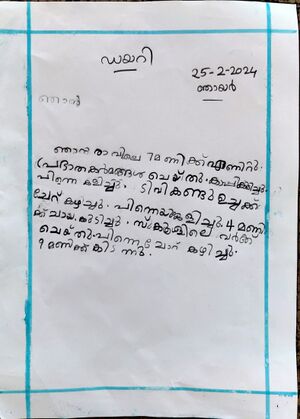 ഡയറി
25-2-2024
ഞായർ
ഞാൻ
ഞാൻ രാവിലെ 7 മണിക്ക് എണിറ്റു.
പ്രഭാതകർമ്മങ്ങൾ ചെയ്തു. കാപ്പികുടിച്ചു.
പിന്നെ കളിച്ചു. ടിവി കണ്ടു ഉച്ചക്ക്
ചോറ് കഴിച്ചു. പിന്നെയുംകളിച്ചു. 4 മണി
ക്ക് ചായ കുടിച്ചു. സ്കൂളിലെ വർക്ക്
ചെയ്തു. പിന്നെ ചോറ് കഴിച്ചു.
9 മണിക്ക് കിടന്നു.